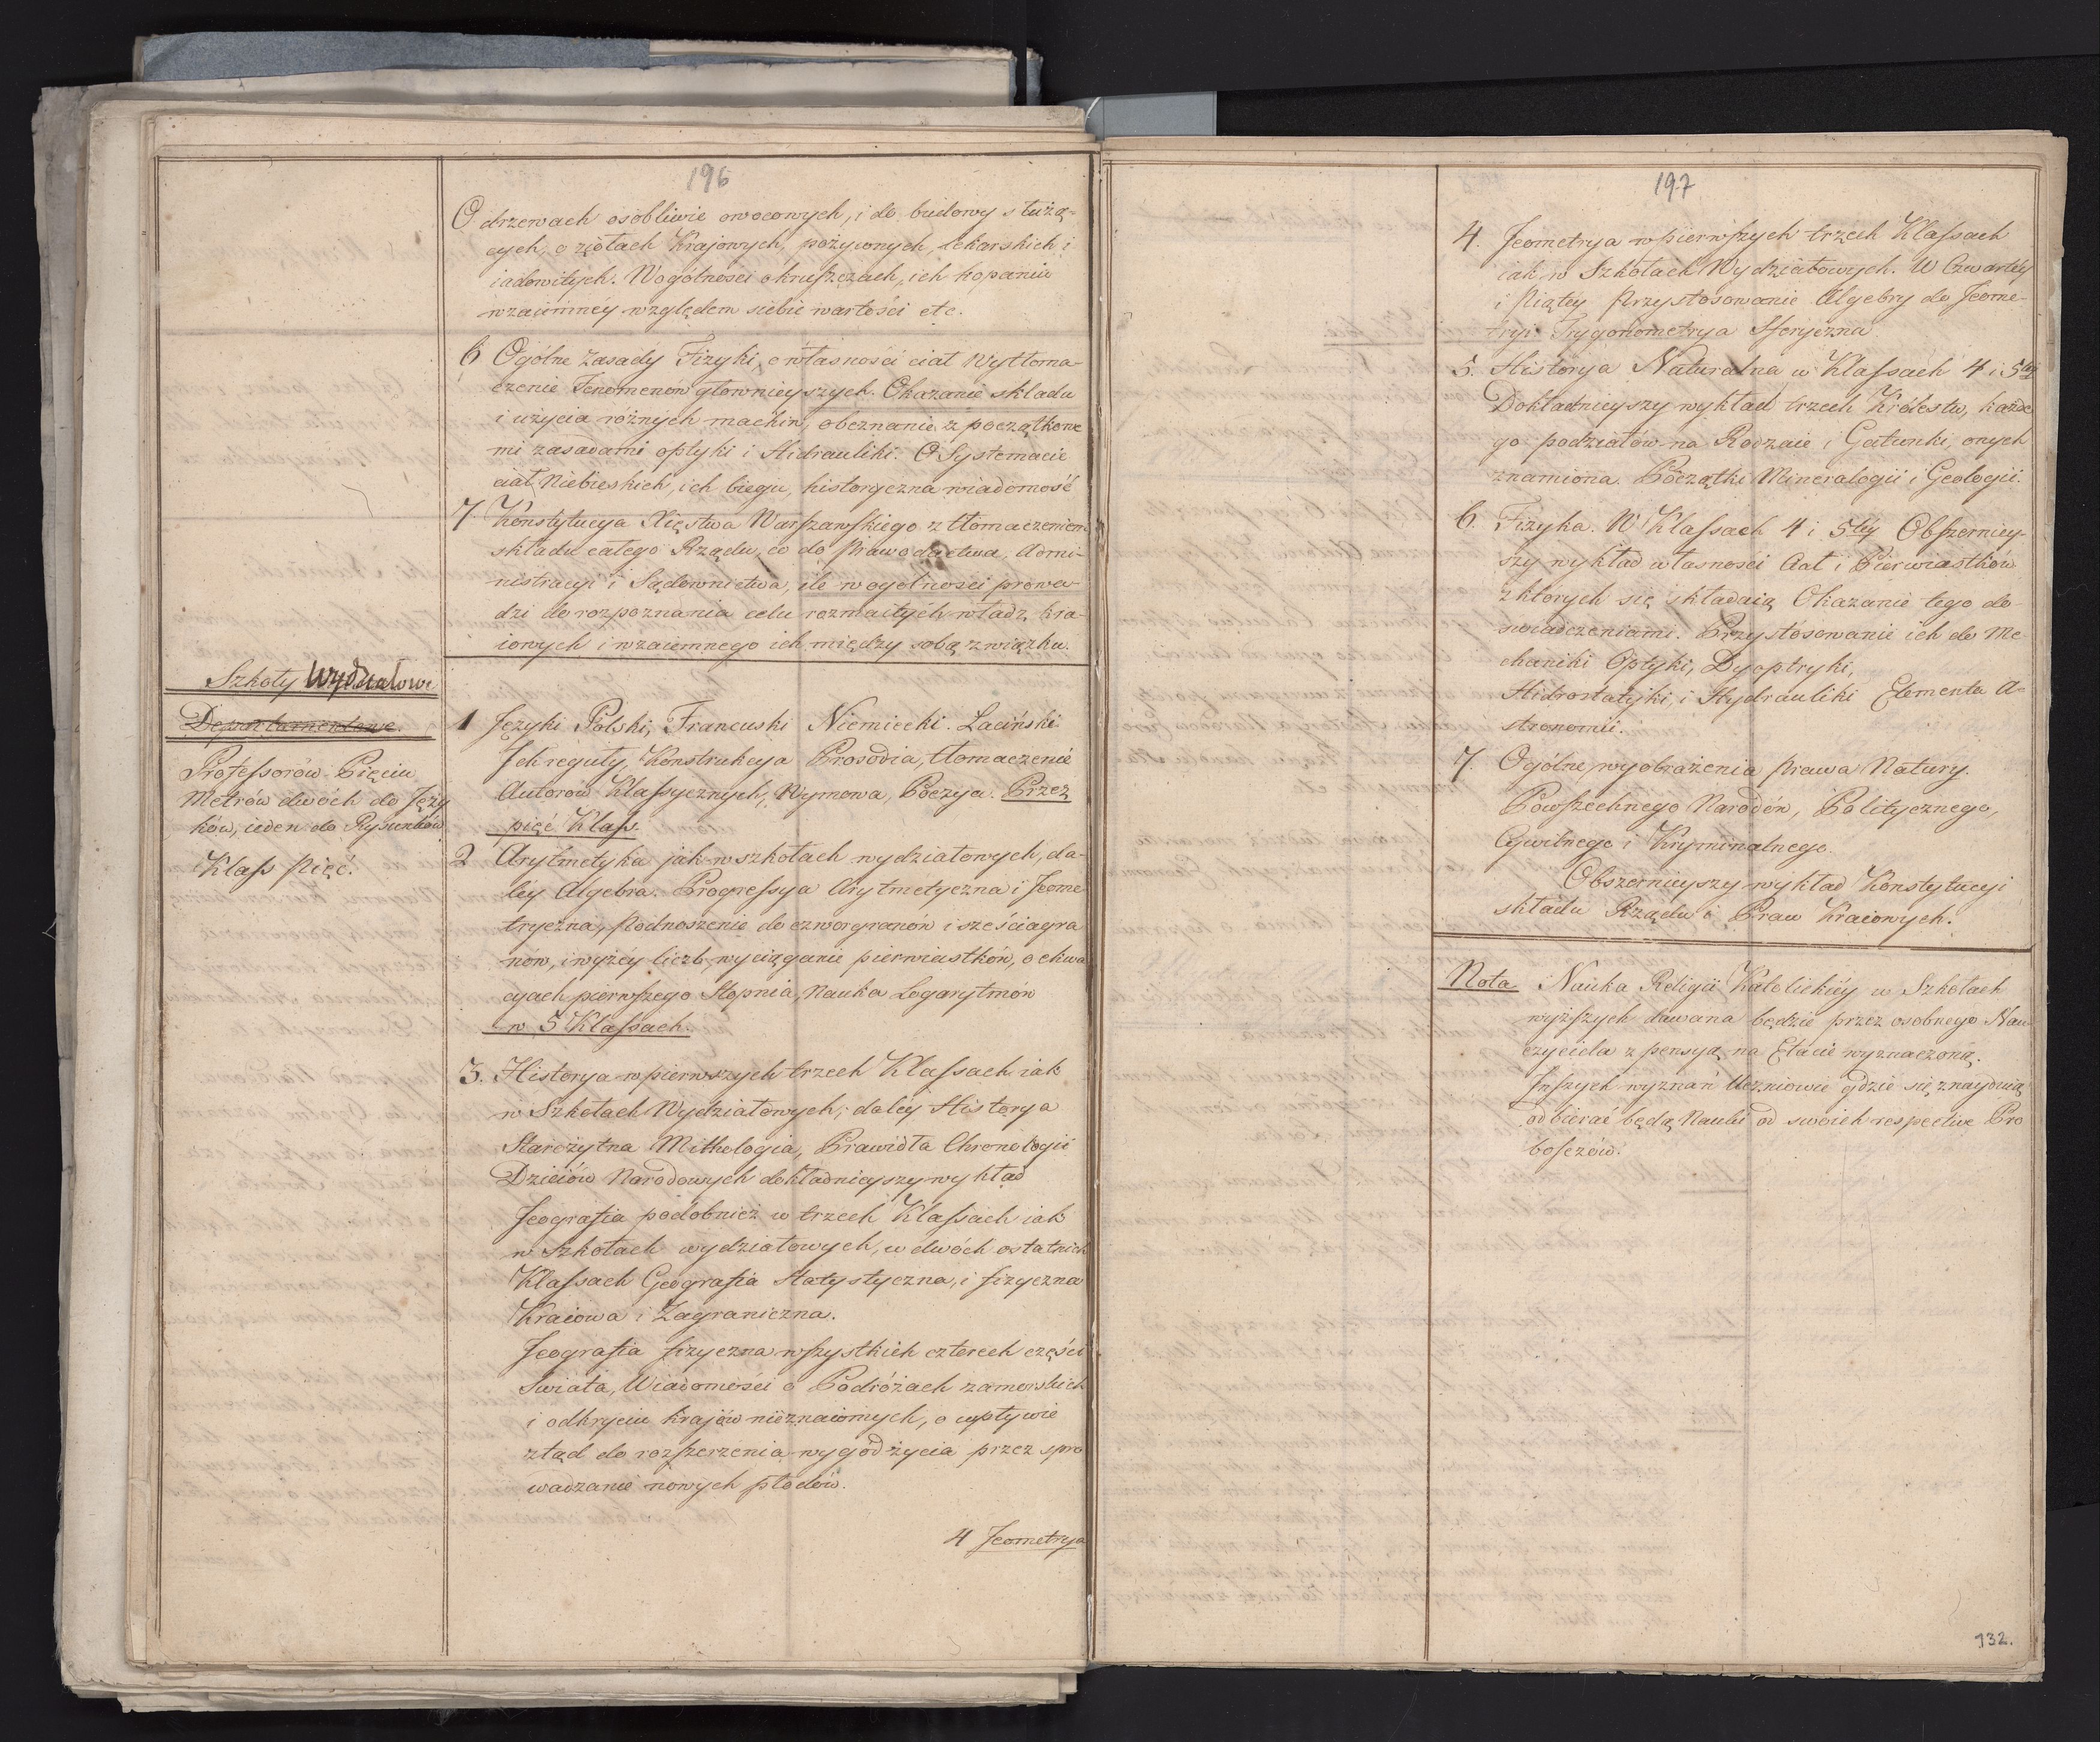 196
O drzewach osobliwie owocowych, i do budowy służą-
cych, o ziołach Krajowych, pożywnych, lekarskich i
iadowitych. W ogólności o kruszczach, ich kopaniu
wzaiemnéy względem siebie wartości etc.
6 Ogólne zasady Fizyki, o własności ciał Wytłoma-
czenie Fenomenów głownieyszych. Okazanie składu
i użycia różnych machin, obeznanie z początkowe
mi zasadami optyki i Hidrauliki. O Systemacie
ciał Niebieskich, ich biegu, historyczna wiadomość
7. Konstytucya Xięstwa Warszawskiego z tłomaczeniem
składu całego Rządu, co do Prawodactwa, Admi-
nistracyi i Sądownictwa, ile w ogólności prowa-
dzi do rozpoznania celu rozmaitych władz kra-
iowych i wzaiemnego ich między sobą związku.
Szkoły Wydziałowe
Departamentowe.
Professorów Pięciu
Metrów dwóch do Języ
ków, ieden do Rysunków
Klass Pięć.
1 Języki Polski, Francuski Niemiecki. Laciński
Ich reguły, Konstrukcya Prosodia, tłomaczenie
Autorów Klassycznych, Wymowa, Poezya. Przez
pięć Klass.
2 Arytmetyka jak w szkołach wydziałowych, da-
léy Algebra. Progressya Arytmetyczna i Jeome
tryczna, Podnoszenie do czworgranów i sześciagra
nów, i wyżéy liczb, wyciąganie pierwiastków, o ekwa
cyach pierwszego Stopnia, Nauka Logarytmów
w 5 Klassach.
3. Historya w pierwszych trzech Klassach iak
w Szkołach Wydziałowych, daléy Historya
Starożytna Mithologia, Prawidła Chronologii
Dzieiów Narodowych dokładnieyszy wykład
Jeografia podobnież w trzech Klassach iak
w Szkołach wydziałowych, w dwóch ostatnich
Klassach Geografia statystyczna, i fizyczna
Kraiowa i Zagraniczna.
Jeografia fizyczna wszystkich czterech części
Świata, Wiadomości o Podróżach zamorskich
i odkryciu krajów nieznaiomych, o wpływie
ztąd do rozszerzenia wygód życia przez spro
wadzanie nowych płodów.
4 Jeometrya
197
4. Jeometrya w pierwszych trzech Klassach
iak w Szkołach Wydziałowych. W Czwartéy
i Piątéy Przystosowanie Algebry do Jeome-
tryi Trygonometrya Sferyczna
5. Historya Naturalna w Klassach 4 i 5téy
Dokładnieyszy wykład trzech Królestw, każde
go podziałów na Rodzaie i Gatunki, onych
znamiona. Początki Mineralogii i Geologii.
6. Fizyka. W Klassach 4 i 5téy Obszerniey-
szy wykład własności Ciał i Pierwiastków
z których się składaią Okazanie tego do-
swiadczeniami. Przystosowanie ich do Me
chaniki Optyki, Dyoptryki,
Hidrostatyki, i Hydrauliki Elementa A-
stronomii.
7. Ogólne wyobrażenia Prawa Natury.
Powszechnego Narodów, Politycznego,
Cywilnego i Kryminalnego.
Obszernieyszy wykład Konstytucyi
składu Rządu i Praw Kraiowych.
Nota Nauka Religii Katolickiéy w Szkołach
wyższych dawana będzie przez osobnego Nau
czyciela z pensyą na Etacie wyznaczoną.
Inszych wyznań Uczniowie gdzie się znayduią
odbierać będą Nauki od swoich respective Pro
boszczów.
132.